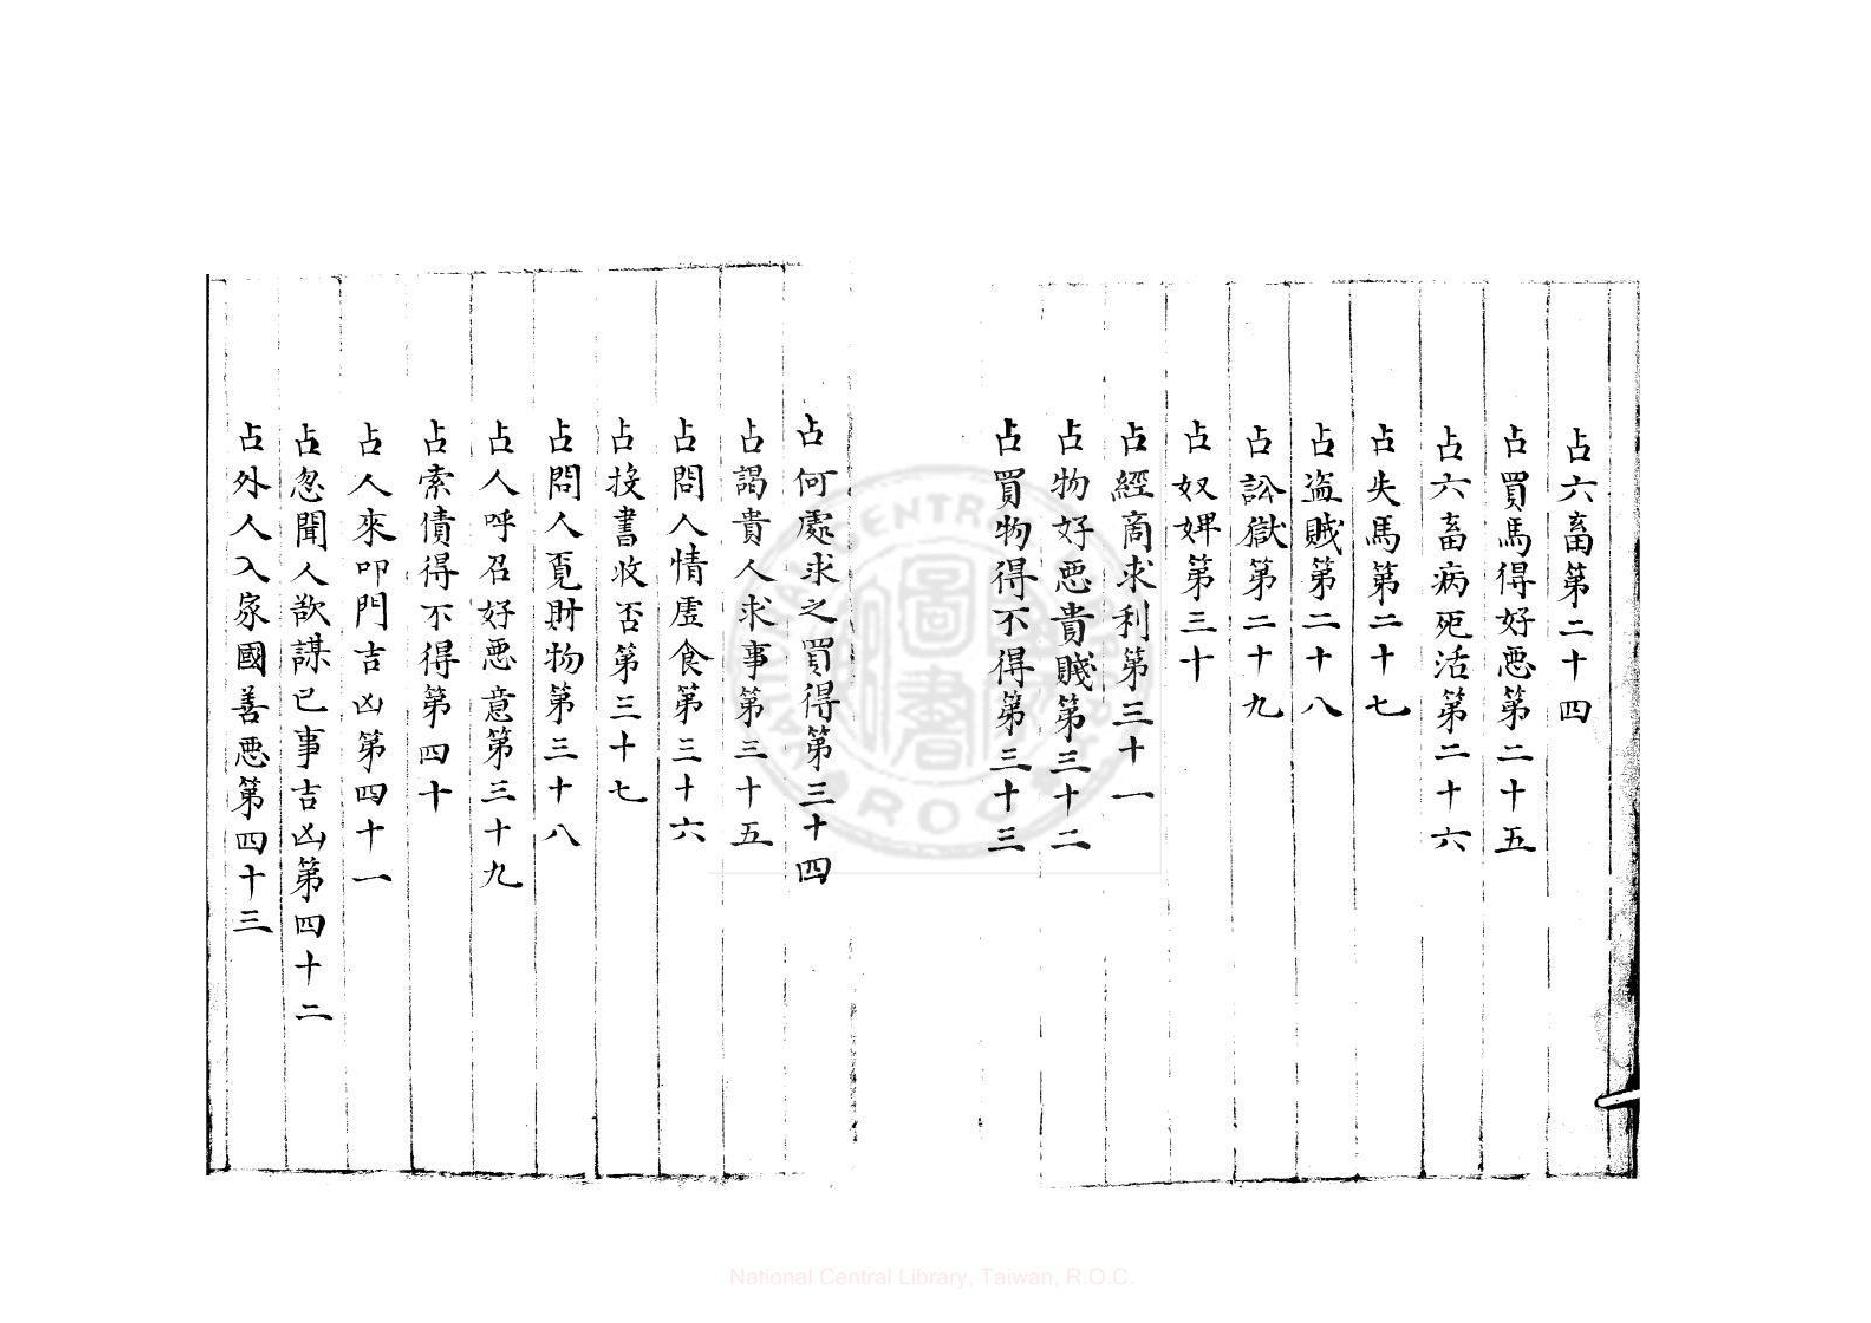 占六畜第二十四
占買馬得好惡第二十五
占六畜病死活第二十六
占失馬第二十七
占盗賊第二十八
占訟獄第二十九
占奴婢第三十
占經商求利第三十一
占物好惡貴賤第三十二
占買物得不得第三十三
占何處求之買得第三十四
占謁貴人求事第三十五
占問人情虛食第三十六
占投書收否第三十七
占問人覓財物第三十八
占人呼召好惡意第三十九
占索債得不得第四十
占人來叩門吉凶第四十一
占忽聞人欲謀已事吉凶第四十二
占外人入家國善惡第四十三
CENTR
圖書
R.O.C.
National Central Library, Taiwan, R.O.C.